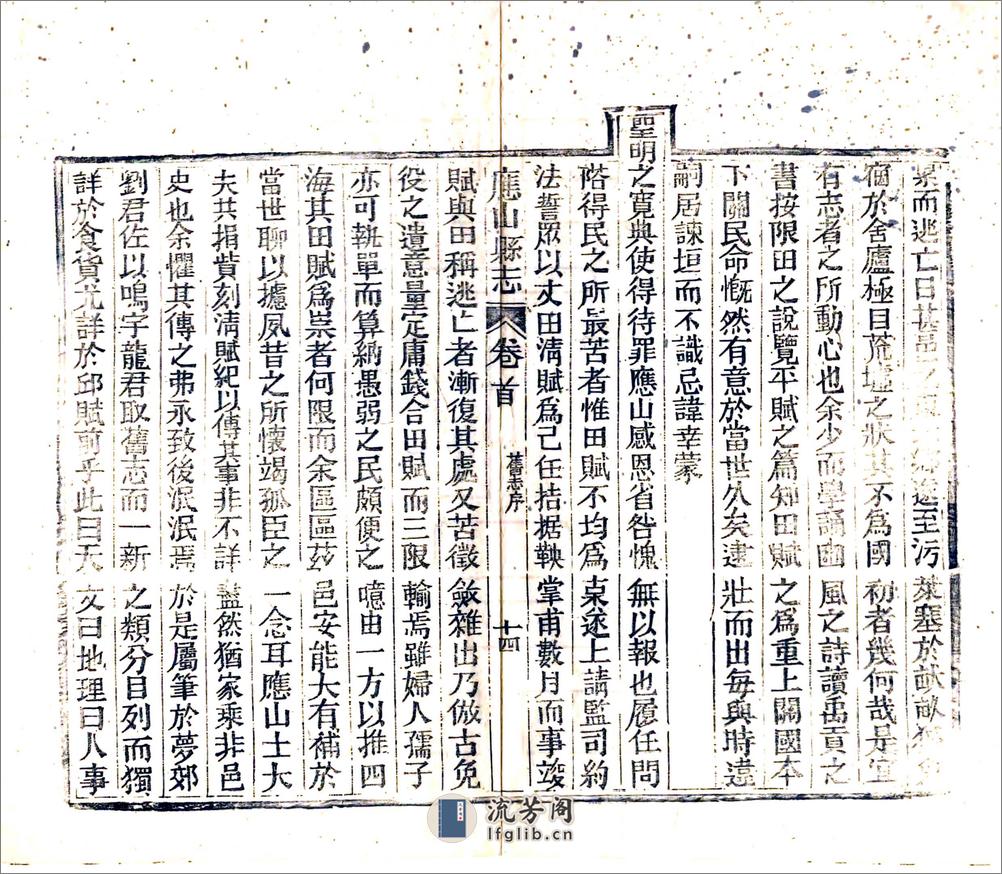 累而逃亡日甚邑之至污萊塞於畎畝
窗於舍廬極目荒墟之狀其不為國初者幾何哉是宜
有志者之所動心也余少而學誦豳風之詩讀禹貢之
書按限田之說覽平賦之篇知田賦之爲重上關國本
下關民命慨然有意於當世久矣逮壯而出每與時違
嗣居諫垣而不識忌諱幸蒙
聖明之寬典使得待罪應山感恩省咎愧無以報也履任問
俗得民之所最苦者惟田賦不均爲最遂上請監司約
法誓眾以丈田清賦爲己任拮据鞅掌甫數月而事竣
賦與田稱逃亡者漸復其處又苦徵斂雜出乃倣古免
應山縣志 卷首 舊志序 十四
役之遺意量定庸錢合田賦而三限輸焉雖婦人孺子
亦可執單而算納愚弱之民頗便之噫由一方以推四
海其田賦爲祟者何限而余區區茲邑安能大有補於
當世聊以攄夙昔之所懷竭孤臣之一念耳應山士大
夫共捐貲刻清賦紀以傳其事非不詳盡然猶家乘非邑
史也余懼其傳之弗永致後泯泯焉於是屬筆於夢郊
劉君佐以鳴宇龍君取舊志而一新之類分目列而獨
詳於食貨尤詳於邱賦前乎此曰天文曰地理曰人事
流芳阁
lfglib.cn